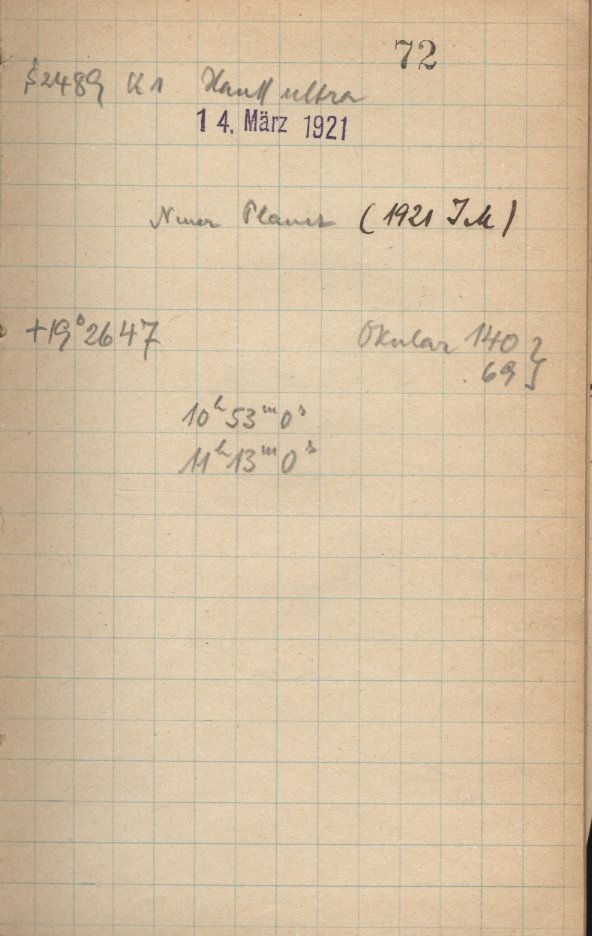 72
B2489 K1 Hauff ultra
14. März 1921
Neuer Planet (1921 JM)
+19°2647 Okular 140 }
69 }
10ʰ53ᵐ0ˢ
11ʰ13ᵐ0ˢ